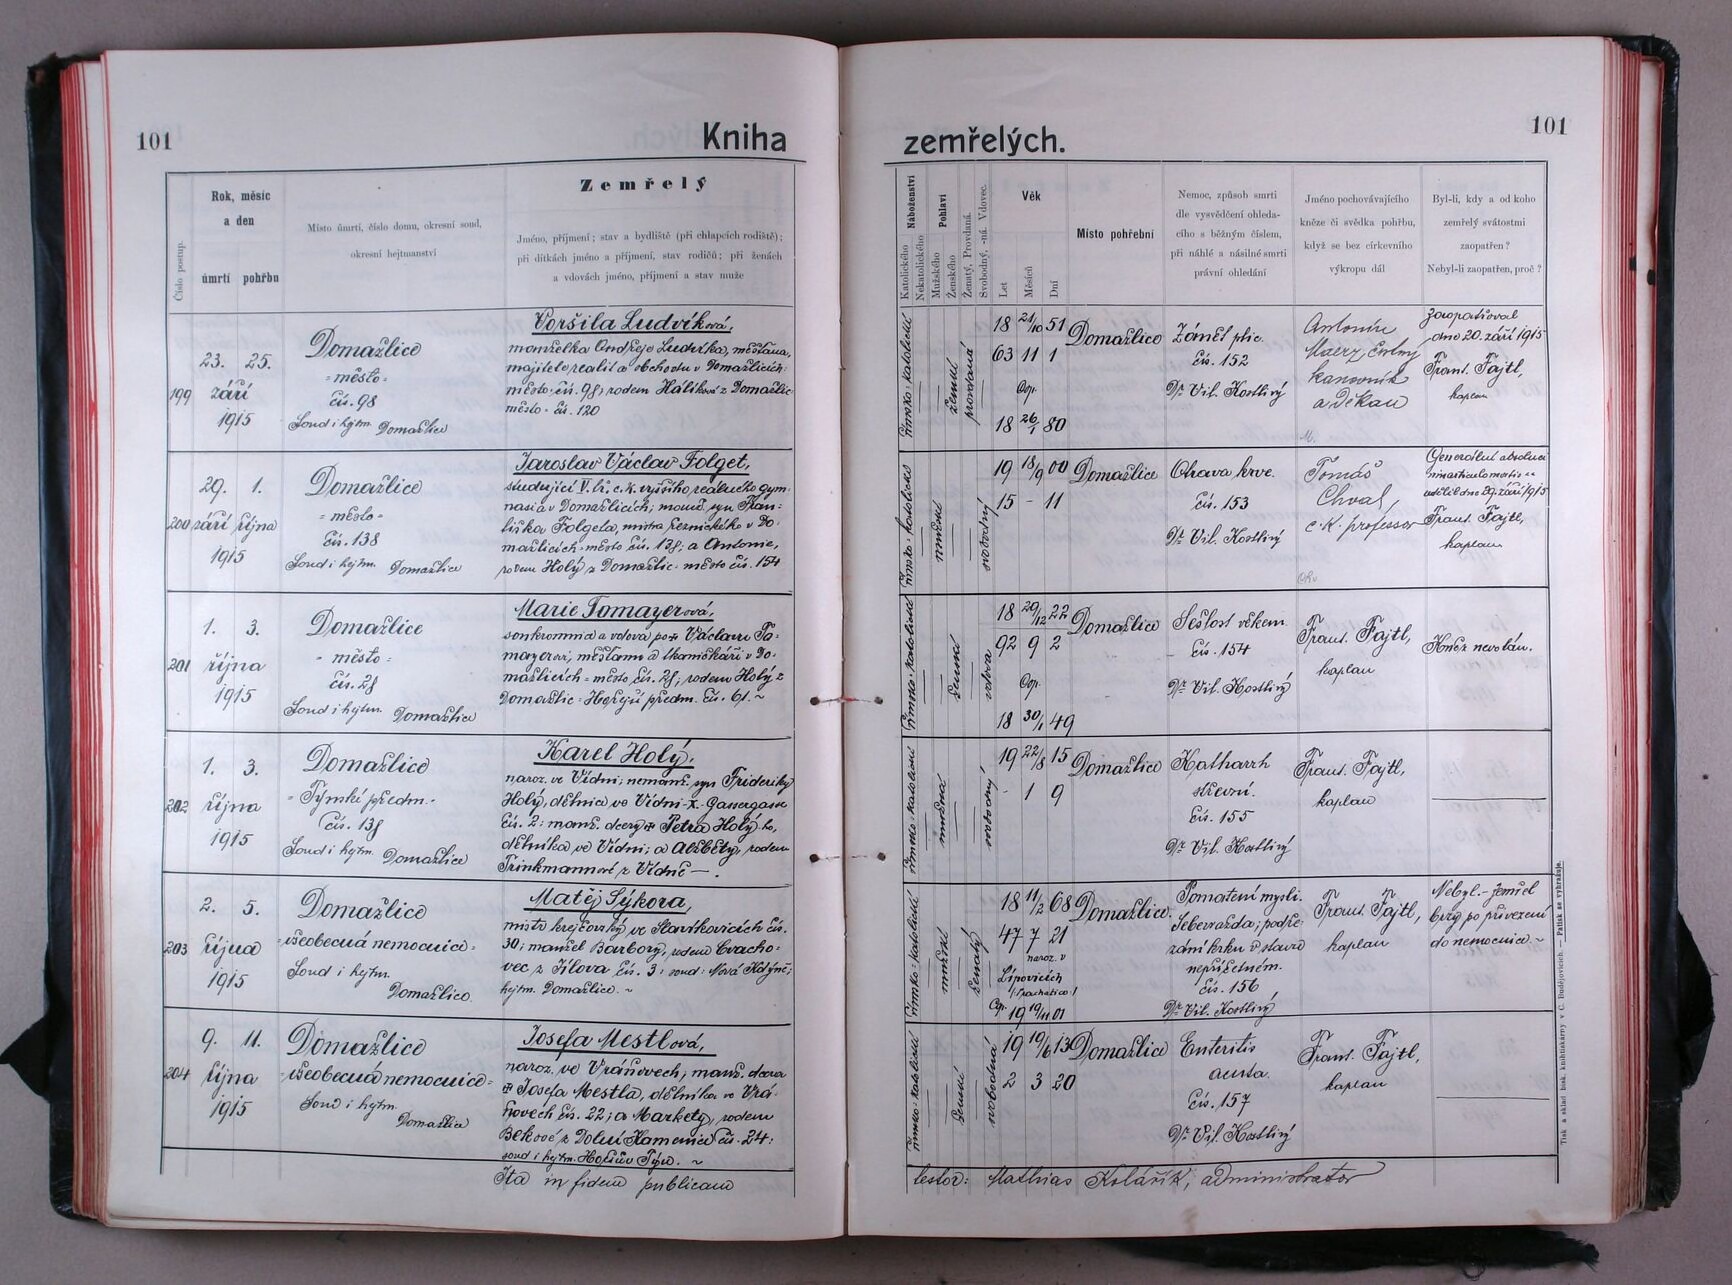 101
Kniha
zemřelých.
101
Číslo postup.
Rok, měsíc
a den
úmrtí pohřbu
Místo úmrtí, číslo domu, okresní soud,
okresní hejtmanství
Zemřelý
Jméno, příjmení; stav a bydliště (při chlapcích rodiště);
při dítkách jméno a příjmení, stav rodičů; při ženách
a vdovách jméno, příjmení a stav muže
Náboženství
Katolického
Nekatolického
Pohlaví
Mužského
Ženského
Ženatý, Provdaná.
Svobodný, -ná. Vdovec.
Věk
Let
Měsíců
Dní
Místo pohřební
Nemoc, způsob smrti
dle vysvědčení ohleda-
cího s běžným číslem,
při náhlé a násilné smrti
právní ohledání
Jméno pochovávajícího
kněze či svědka pohřbu,
když se bez církevního
výkropu dál
Byl-li, kdy a od koho
zemřelý svátostmi
zaopatřen?
Nebyl-li zaopatřen, proč?
199
23. 25.
září
1915
Domažlice
=město=
čís. 98
Soud i hejtm. Domažlice
Voršila Ludvíková,
manželka Ondřeje Ludvíka, měšťana,
majitele realit a obchodu v Domažlicích:
město: čís. 98; rodem Hálíkové z Domažlic
město: čís. 120
římsko-katolické
ženské
provdaná
18 21/10 51
63 11 1
Cop.
18 26/1 80
Domažlice
Zánět plic.
čís. 152
Dr. Vil. Kostlivý
Antonín
Maerz, čestný
kanovník
a děkan
Zaopatřoval
dne 20. září 1915
Frant. Fajtl,
kaplan
200
29. 1.
září října
1915
Domažlice
=město=
čís. 138
Soud i hejtm. Domažlice
Jaroslav Václav Folget,
studující V. tř. c. k. vyššího reálného gym-
nasia v Domažlicích; manž. syn Fran-
tiška Folgeta, mistra řeznického v Do-
mažlicích: město čís. 138; a Antonie,
rodem Holý z Domažlic: město čís. 154
římsko-katolické
mužské
svobodný
19 18/9 00
15 - 11
Domažlice
Otrava krve.
čís. 153
Dr. Vil. Kostlivý
Tomáš
Chval,
c. k. professor
Generální absoluci
in articulo mortis
udělil dne 29. září 1915
Frant. Fajtl,
kaplan
201
1. 3.
října
1915
Domažlice
=město=
čís. 28
Soud i hejtm. Domažlice
Marie Tomayerová,
soukromnice a vdova po † Václavu To-
mayerovi, měšťanu a tkaničkáři v Do-
mažlicích: město čís. 28; rodem Holý z
Domažlic: Hořejší předm. čís. 61.
římsko-katolické
ženské
vdova
18 29/12 22
92 9 2
Cop.
18 30/1 49
Domažlice
Sešlost věkem
čís. 154
Dr. Vil. Kostlivý
Frant. Fajtl,
kaplan
Kněz nevolán.
202
1. 3.
října
1915
Domažlice
=Týnské předm.=
čís. 138
Soud i hejtm. Domažlice
Karel Holý,
naroz. ve Vídni; nemanž. syn Frideriky
Holý, dělnice ve Vídni-X. Gassergasse
čís. 2; manž. dcery † Petra Holý-ho,
dělníka ve Vídni; a Alžběty, rodem
Trinkmannové z Vídně —.
římsko-katolické
mužské
svobodný
19 22/8 15
- 1 9
Domažlice
Katharrh
střevní.
čís. 155
Dr. Vil. Kostlivý
Frant. Fajtl,
kaplan
203
2. 5.
října
1915
Domažlice
=všeobecná nemocnice=
Soud i hejtm.
Domažlice
Matěj Sýkora,
mistr krejčovský ve Slavíkovicích čís.
30; manžel Barbory, rodem Cvacho-
vec z Jílova čís. 3; soud: Nová Kdýně;
hejtm. Domažlice.
římsko-katolické
mužské
ženatý
18 11/2 68
47 7 21
naroz. v
Lipovicích
Cop. 19 19/11 01
Domažlice.
Pomatení mysli.
Sebevražda; podře-
zání krku v stavu
nepříčetném.
čís. 156
Dr. Vil. Kostlivý
Frant. Fajtl,
kaplan
Nebyl.- Zemřel
brzy po přivezení
do nemocnice.
204
9. 11.
října
1915
Domažlice
=všeobecná nemocnice=
Soud i hejtm.
Domažlice
Josefa Mestlová,
naroz. ve Vránovech; manž. dcera
† Josefa Mestla, dělníka ve Vrá-
novech čís. 22; a Markéty, rodem
Bekové z Dolní Kamenice čís. 24:
soud i hejtm. Horšův Týn.
římsko-katolické
ženské
svobodná
19 19/6 13
2 3 20
Domažlice
Enteritis
acuta.
čís. 157
Dr. Vil. Kostlivý
Frant. Fajtl,
kaplan
Ita in fidem publicam
testor: Mathias Kolářík, administrator
Tisk a sklad bisk. knihtiskárny v Č. Budějovicích. — Patisk se vyhražuje.